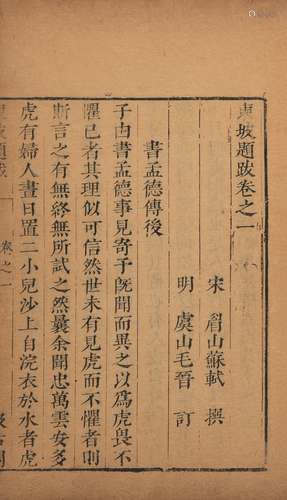 東坡題跋卷之一
宋 眉山蘇軾 撰
明 虞山毛晉 訂
書孟德傳後
子由書孟德事見寄予旣聞而異之以爲虎畏不
懼已者其理似可信然世未有見虎而不懼者則
斯言之有無終無所試之然曩余聞忠萬雲安多
虎有婦人晝日置二小兒沙上自浣衣於水者虎
東坡題跋 卷之一